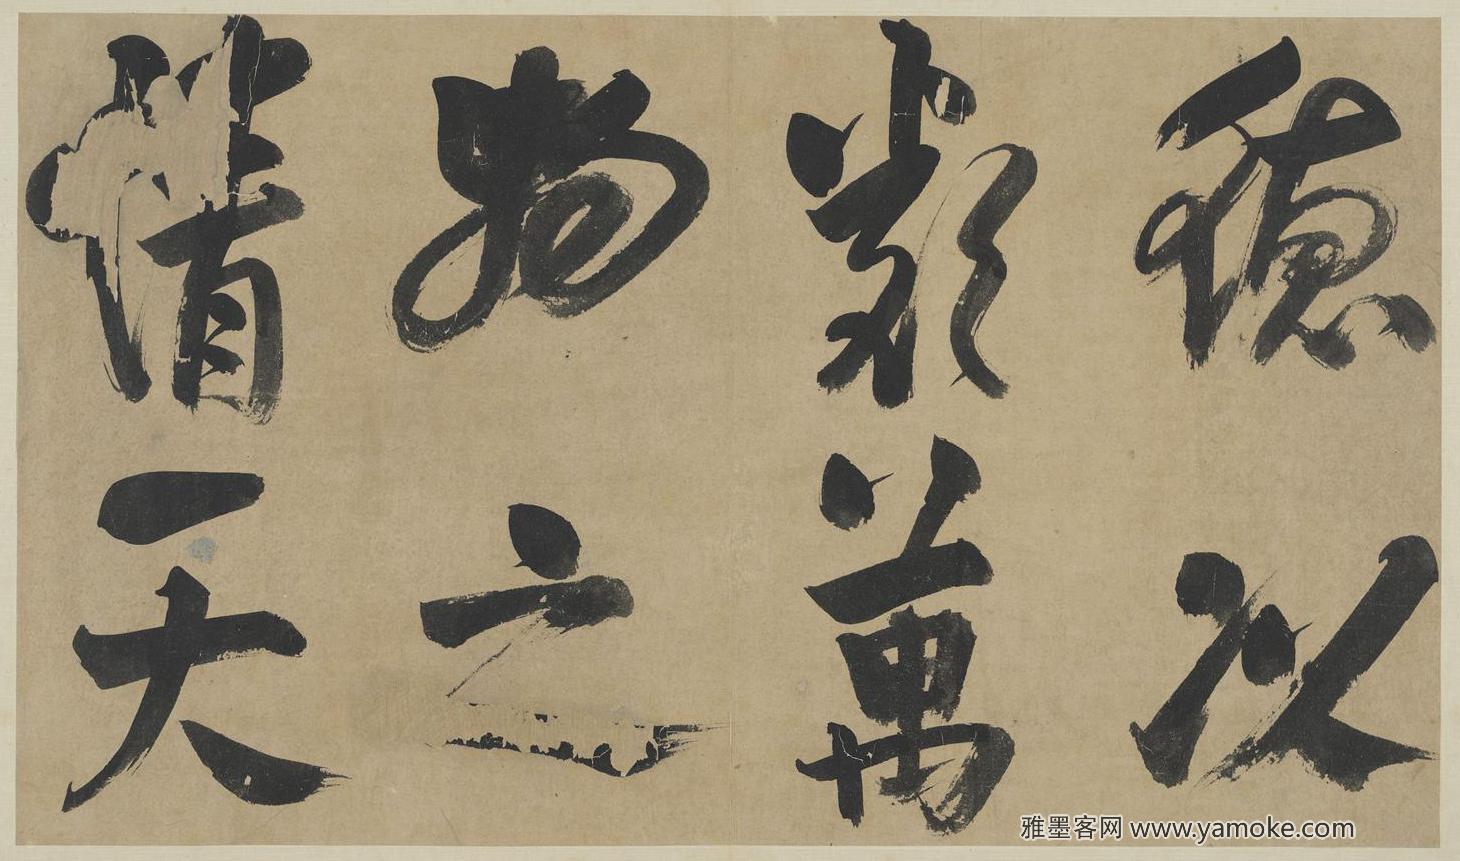 德以
類萬
物之
情天
雅墨客网 www.yamoke.com